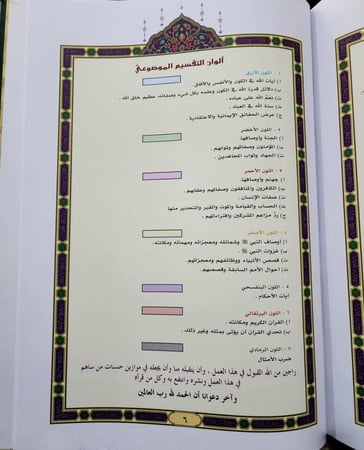 ألوان التقسيم الموضوعي
١ - اللون الأزرق
أ) آيات الله في الكون والأنفس والآفاق.
ب) دلائل قدرة الله في الكون وعلمه بكل شيء وصفاته، عظيم خلق الله.
ت) نعم الله على عباده.
ث) سنة الله في العباد.
ج) عرض الحقائق الإيمانية والاعتقادية.
٢ - اللون الأخضر
أ) الجنة وأوصافها.
ب) المؤمنون وصفاتهم وثوابهم.
ت) الجهاد وثواب المجاهدين.
٣ - اللون الأحمر
أ) جهنم وأوصافها.
ب) الكافرون والمنافقون وصفاتهم وعقابهم.
ت) صفات الإنسان.
ث) الحساب والقيامة والموت والقبر والتحذير منها
ج) رد مزاعم المشركين وافتراءاتهم.
٤ - اللون الأصفر
أ) أوصاف النبي ﷺ وشمائله ومعجزاته ومهماته ومكانته.
ب) غزوات النبي ﷺ.
ت) قصص الأنبياء ووظائفهم ومعجزاتهم.
ث) أحوال الأمم السابقة وقصصهم.
٥ - اللون البنفسجي
آيات الأحكام.
٦ - اللون البرتقالي
أ) القرآن الكريم ومكانته.
ب) تحدي القرآن أن يؤتى بمثله وغير ذلك.
٧ - اللون الرمادي
ضرب الأمثال
راجين من الله القبول في هذا العمل، وأن يتقبله منا وأن يجعله في موازين حسنات من ساهم
في هذا العمل ونشره وانتفع به وكل من قرأه
وآخر دعوانا أن الحمد لله رب العالمين
٦